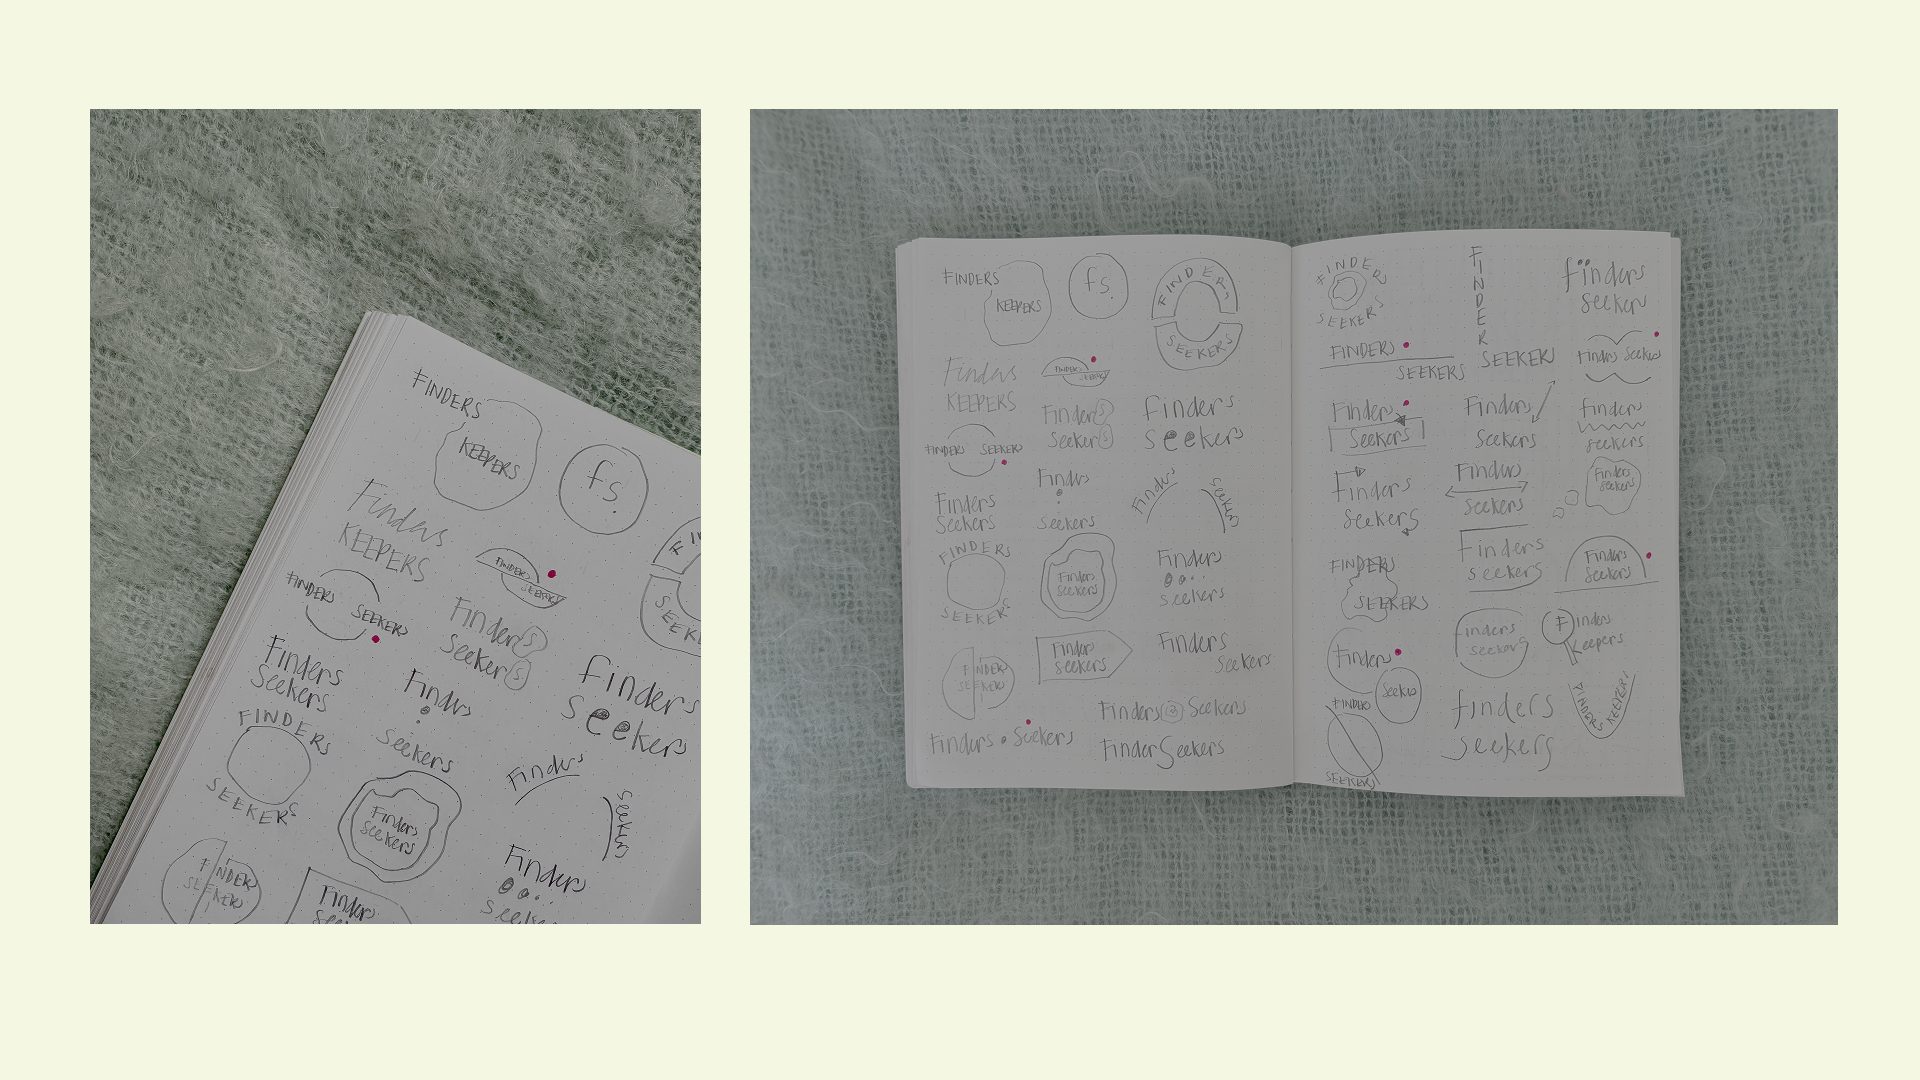 FINDERS
KEEPERS
fs.
FINDERS
KEEPERS
FI
SEEKE
FINDERS
SEEKERS
FINDERS
SEEKERS
Finders
Seekers
finders
seekers
Finders
Seekers
Finders
Seekers
FINDERS
SEEKERS
Finders
Seekers
Finders
Seekers
Finders
Seeke
FINDERS
SEEKERS
Finders
See
FINDERS
KEEPERS
fs.
FINDERS
SEEKERS
Finders
KEEPERS
FINDERS
SEEKERS
Finders
Seekers
finders
seekers
FINDERS SEEKERS
Finders
Seekers
Finders
Seekers
Finders
Seekers
FINDERS
SEEKERS
Finders
Seekers
Finders
Seekers
FINDERS
SEEKERS
Finders
Seekers
Finders
Seekers
Finders Seekers
Finders • Seekers
FinderSeekers
FINDERS
SEEKERS
FINDER
SEEKERS
finders
seekers
FINDERS
SEEKERS
Finders Seekers
Finders
Seekers
Finders
Seekers
finders
seekers
Finders
Seekers
Finders
Seekers
Finders
Seekers
FINDERS
SEEKERS
Finders
seekers
Finders
Seekers
Finders
Seekers
finders
seekers
Finders
Keepers
FINDERS
SEEKERS
finders
seekers
FINDERS
KEEPERS